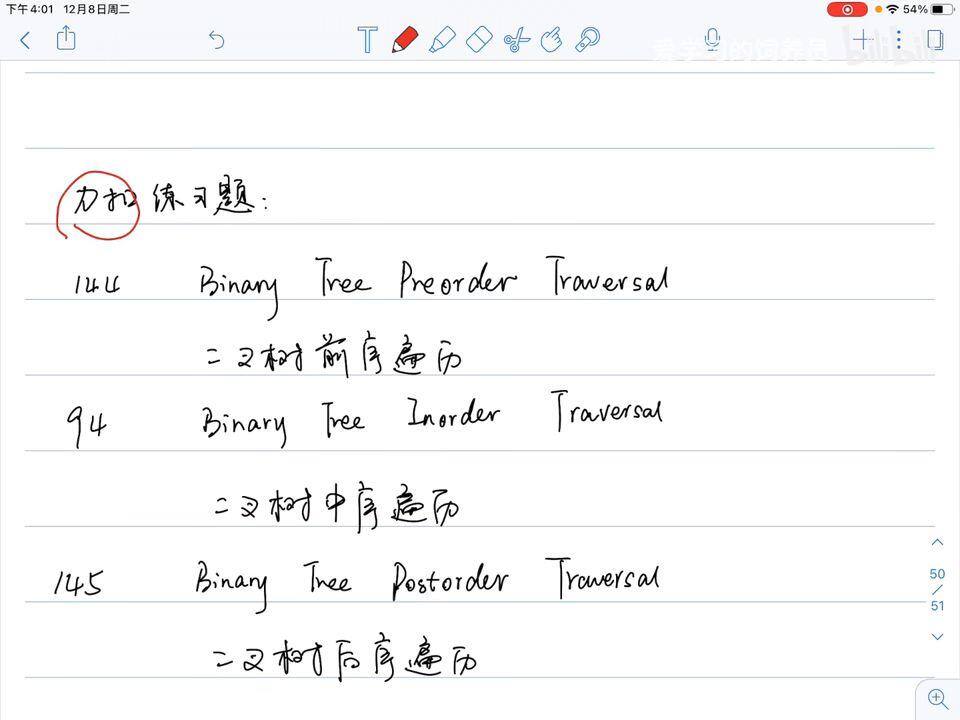 下午4:01 12月8日周二
54%
爱学习的饲养员 bilibili
力扣练习题:
144 Binary Tree Preorder Traversal
二叉树前序遍历
94 Binary Tree Inorder Traversal
二叉树中序遍历
145 Binary Tree Postorder Traversal
二叉树后序遍历
50
/
51